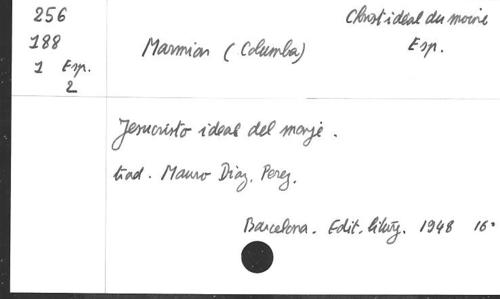 256
188
1 Esp.
2
Christ idéal du moine
Esp.
Marmion (Columba)
Jesucristo ideal del monje.
trad. Mauro Diaz. Perez.
Barcelona. Edit. liturg. 1948 16°